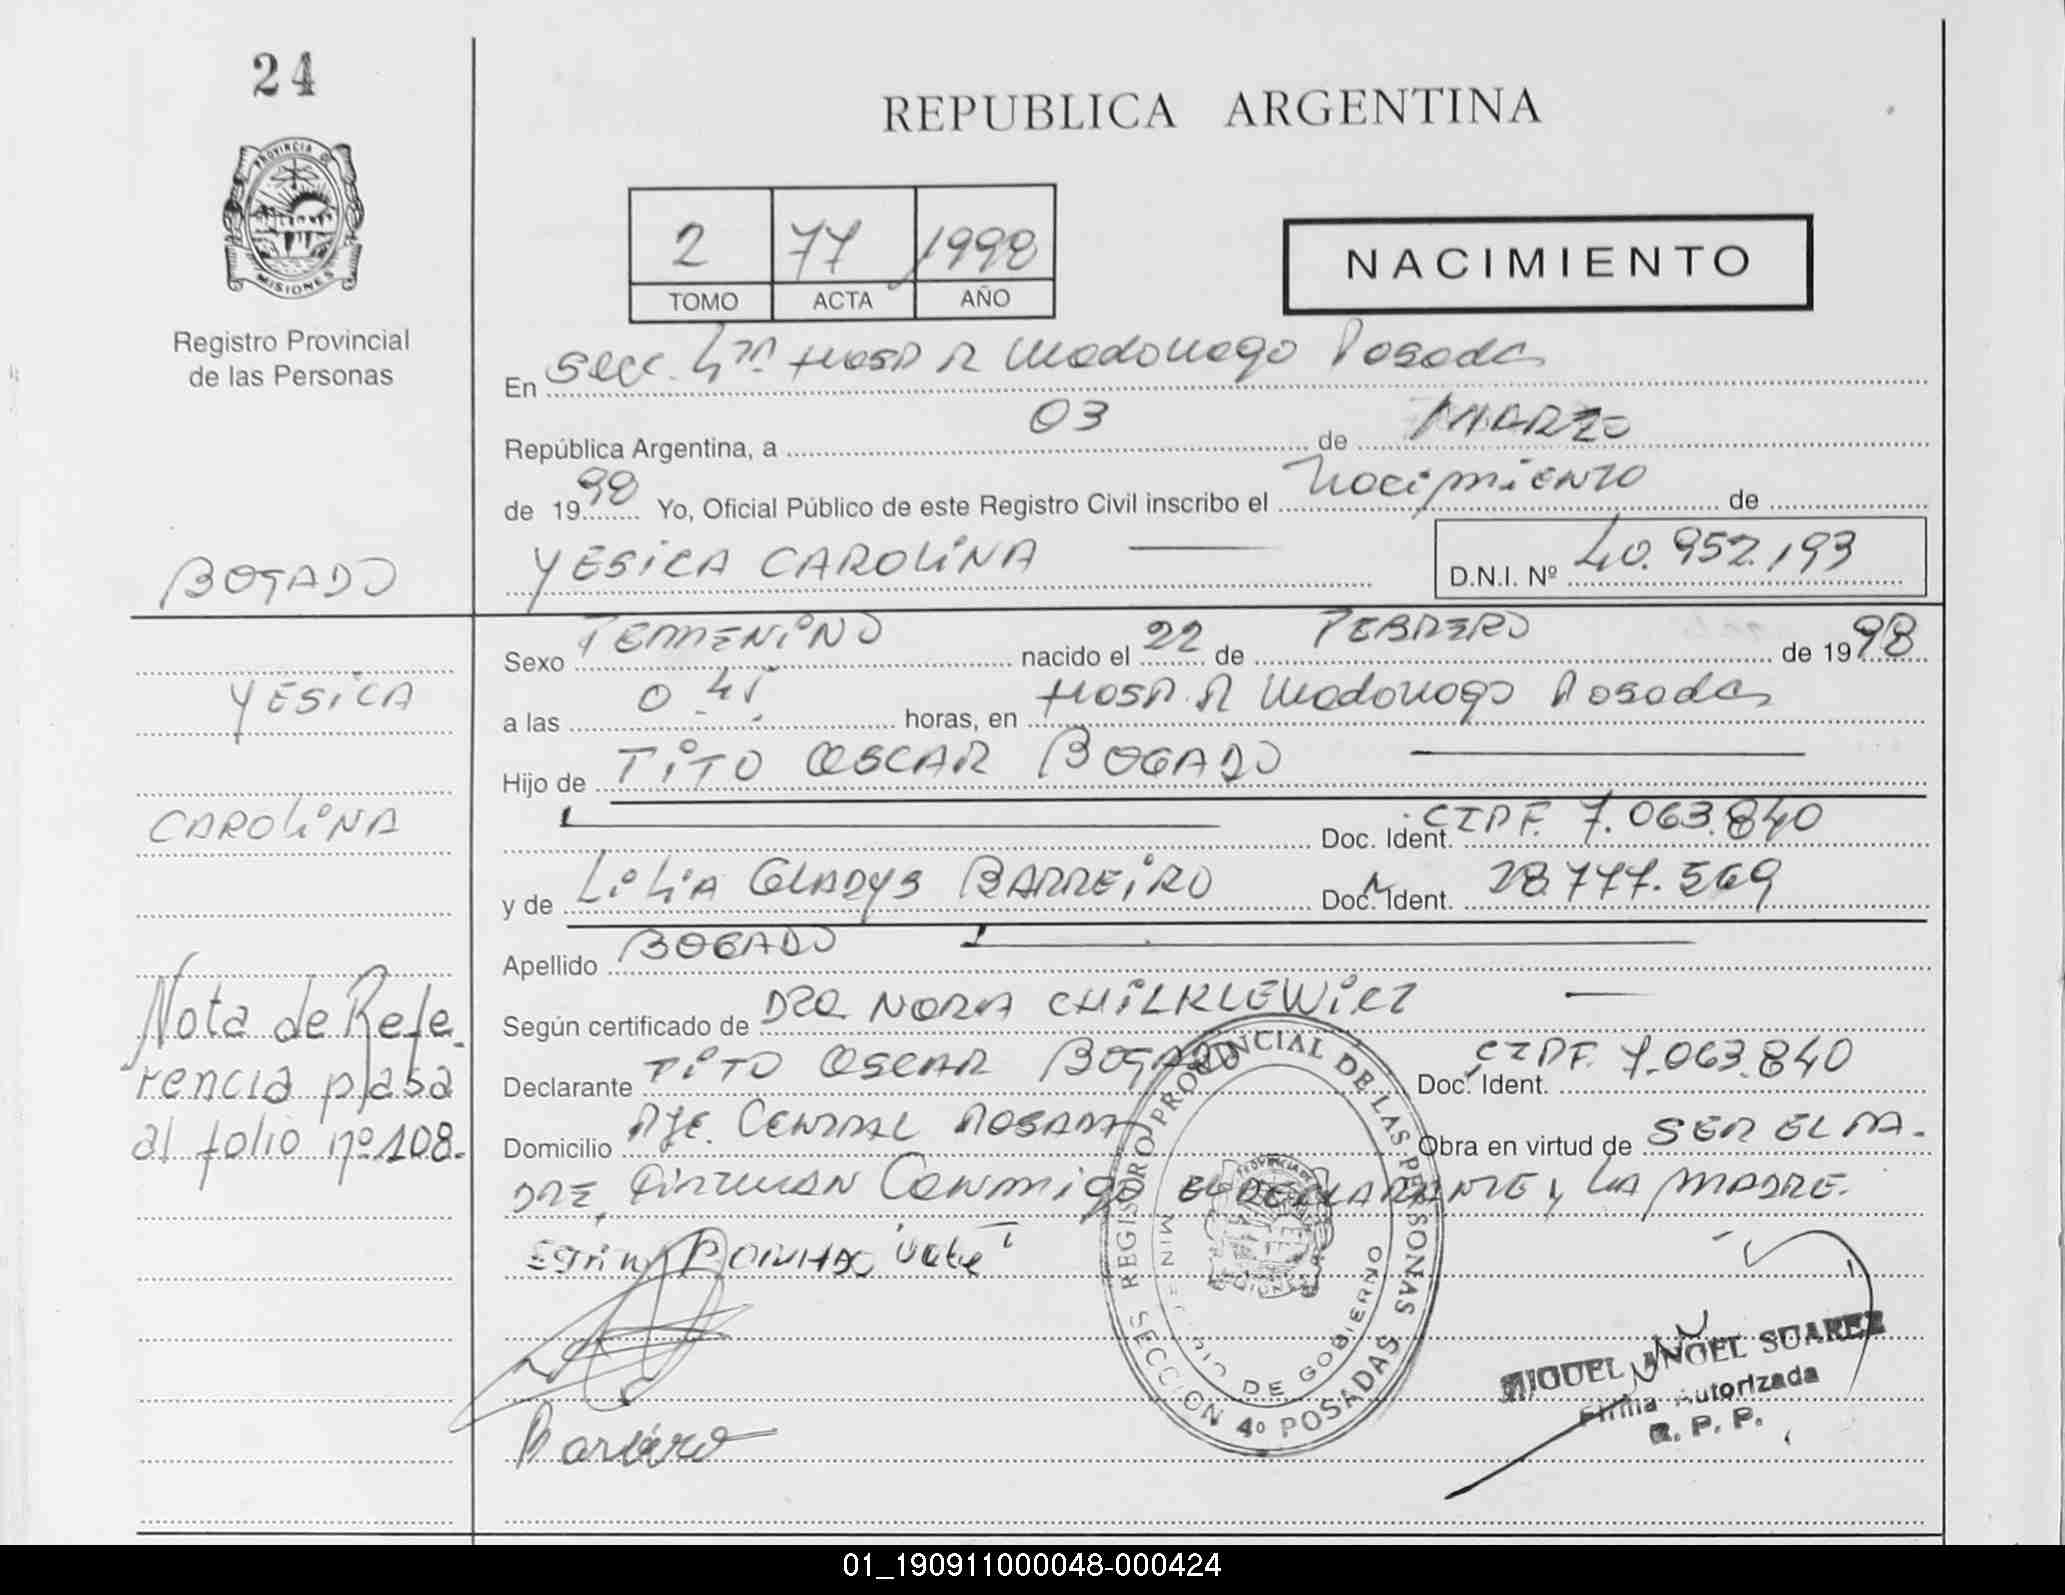 24
REPUBLICA ARGENTINA
PROVINCIA DE
MISIONES
Registro Provincial
de las Personas
2 77 1998
TOMO ACTA AÑO
NACIMIENTO
En Secc. 4ta Hosp R Madonago Posadas
República Argentina, a 03 de MARZO
de 1998 Yo, Oficial Público de este Registro Civil inscribo el Nacimiento de
BOGADO
YESICA CAROLINA
D.N.I. Nº 40.952.193
Sexo FEMENINO nacido el 22 de FEBRERO de 1998
YESICA
a las 0.45 horas, en HOSP. R Madonago Posadas
Hijo de TITO OSCAR BOGADO
CAROLINA
Doc. Ident. CIPF. 7.063.840
y de LILIA GLADYS BARREIRO Doc. Ident. 28.777.569
Apellido BOGADO
Nota de Refe-
rencia pasa
al folio nº 108.
Según certificado de DRA NORA CHILKIEWICZ
Declarante TITO OSCAR BOGADO Doc. Ident. CIPF. 7.063.840
Domicilio PJE. CENTRAL POSADAS Obra en virtud de SER EL PA-
DRE, FIRMAN CONMIGO EL DECLARANTE y LA MADRE.
Barreiro
REGISTRO PROVINCIAL DE LAS PERSONAS
SECCION 4º POSADAS
MINISTERIO DE GOBIERNO
MIGUEL ANGEL SUAREZ
Firma Autorizada
R. P. P.
01_190911000048-000424